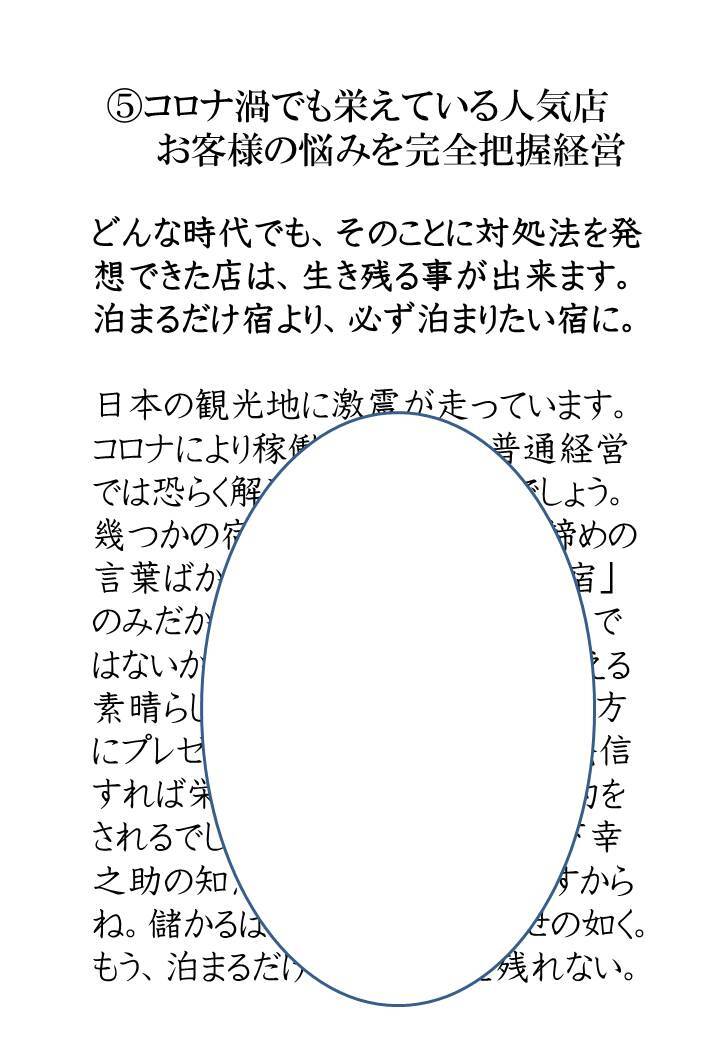 ⑤コロナ渦でも栄えている人気店
お客様の悩みを完全把握経営
どんな時代でも、そのことに対処法を発
想できた店は、生き残る事が出来ます。
泊まるだけ宿より、必ず泊まりたい宿に。
日本の観光地に激震が走っています。
コロナにより稼働 普通経営
では恐らく解 でしょう。
幾つかの宿 諦めの
言葉ばか 宿」
のみだか で
はないか える
素晴らし 方
にプレゼ 信
すれば栄 を
されるでし 下幸
之助の知 すから
ね。儲かるは せの如く。
もう、泊まるだけ 残れない。